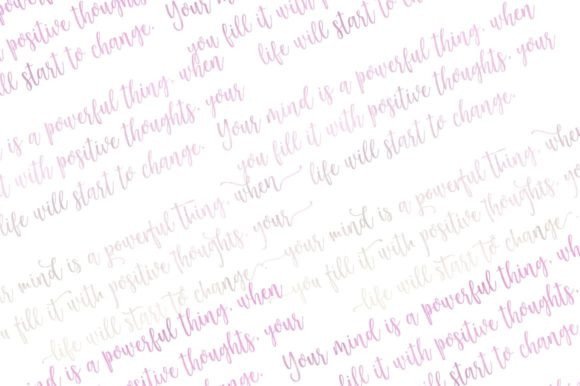 positive thoughts,
will start to change.
Your mind is a
you fill it with positive
life will start to change.
is a powerful thing, when
it with positive thoughts, your
life will start to change.
Your mind is a powerful thing, when
you fill it with positive thoughts, your
life will start to change.
mind is a powerful thing, when
you fill it with positive thoughts, your
life will start to change.
your mind is a powerful thing, when
you fill it with positive thoughts,
life will start to change
mind is a powerful thing, when
positive thoughts, your
Your mind is a powerful thing,
fill it with positive thoughts,
start to change.